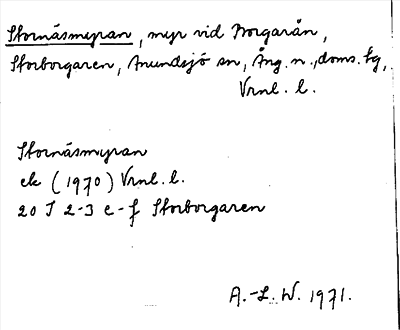 Stornäsmyran, myr vid Norgarån,
Storborgaren, Anundsjö sn, Ång. n., doms. tg,
Vrnl. l.
Stornäsmyran
ek (1970) Vrnl. l.
20 I 2-3 e-f Storborgaren
A.-L. W. 1971.